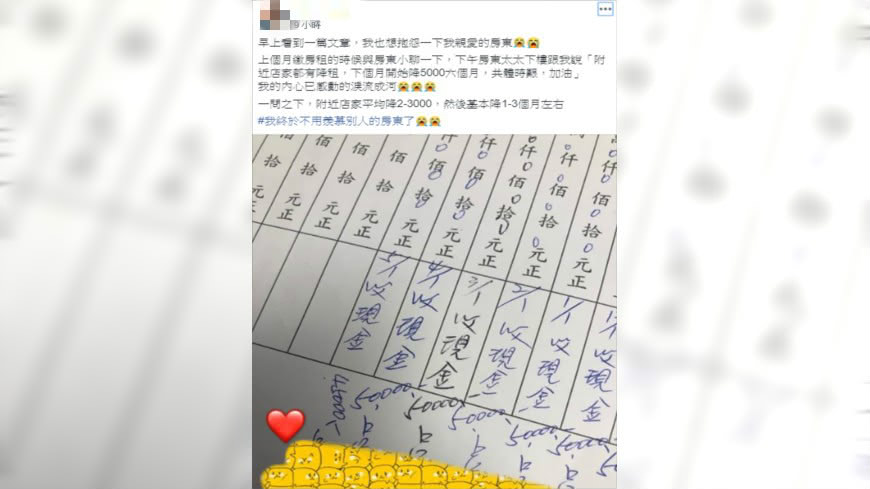 廖小晴
早上看到一篇文章，我也想抱怨一下我親愛的房東😭😭
上個月繳房租的時候與房東小聊一下，下午房東太太下樓跟我說「附
近店家都有降租，下個月開始降5000六個月，共體時艱，加油」
我的內心已感動的淚流成河😭😭😭
一問之下，附近店家平均降2-3000，然後基本降1-3個月左右
#我終於不用羨慕別人的房東了😭😭
佰 拾 元正
佰 拾 元正
佰 拾 元正
佰 拾 元正 5/1 收現金 45000
仟 0佰 0拾 0元正 4/1 收現金 50000
仟 0佰 0拾 0元正 3/1 收現金 50000
仟 0佰 0拾 0元正 2/1 收現金 50000
仟 0佰 0拾 0元正 1/1 收現金 50000
仟 0佰 0拾 0元正 收現金 50000